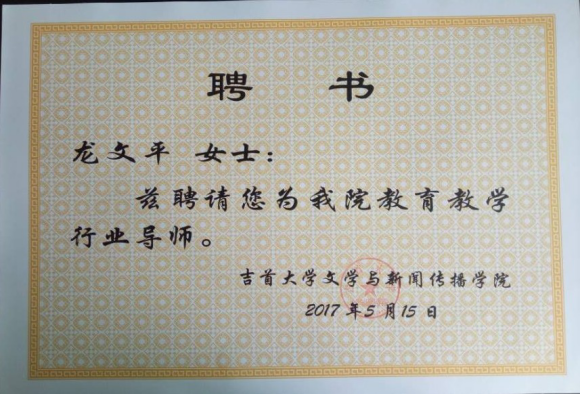 聘 书
龙文平 女士：
兹聘请您为我院教育教学
行业导师。
吉首大学文学与新闻传播学院
2017年5月15日